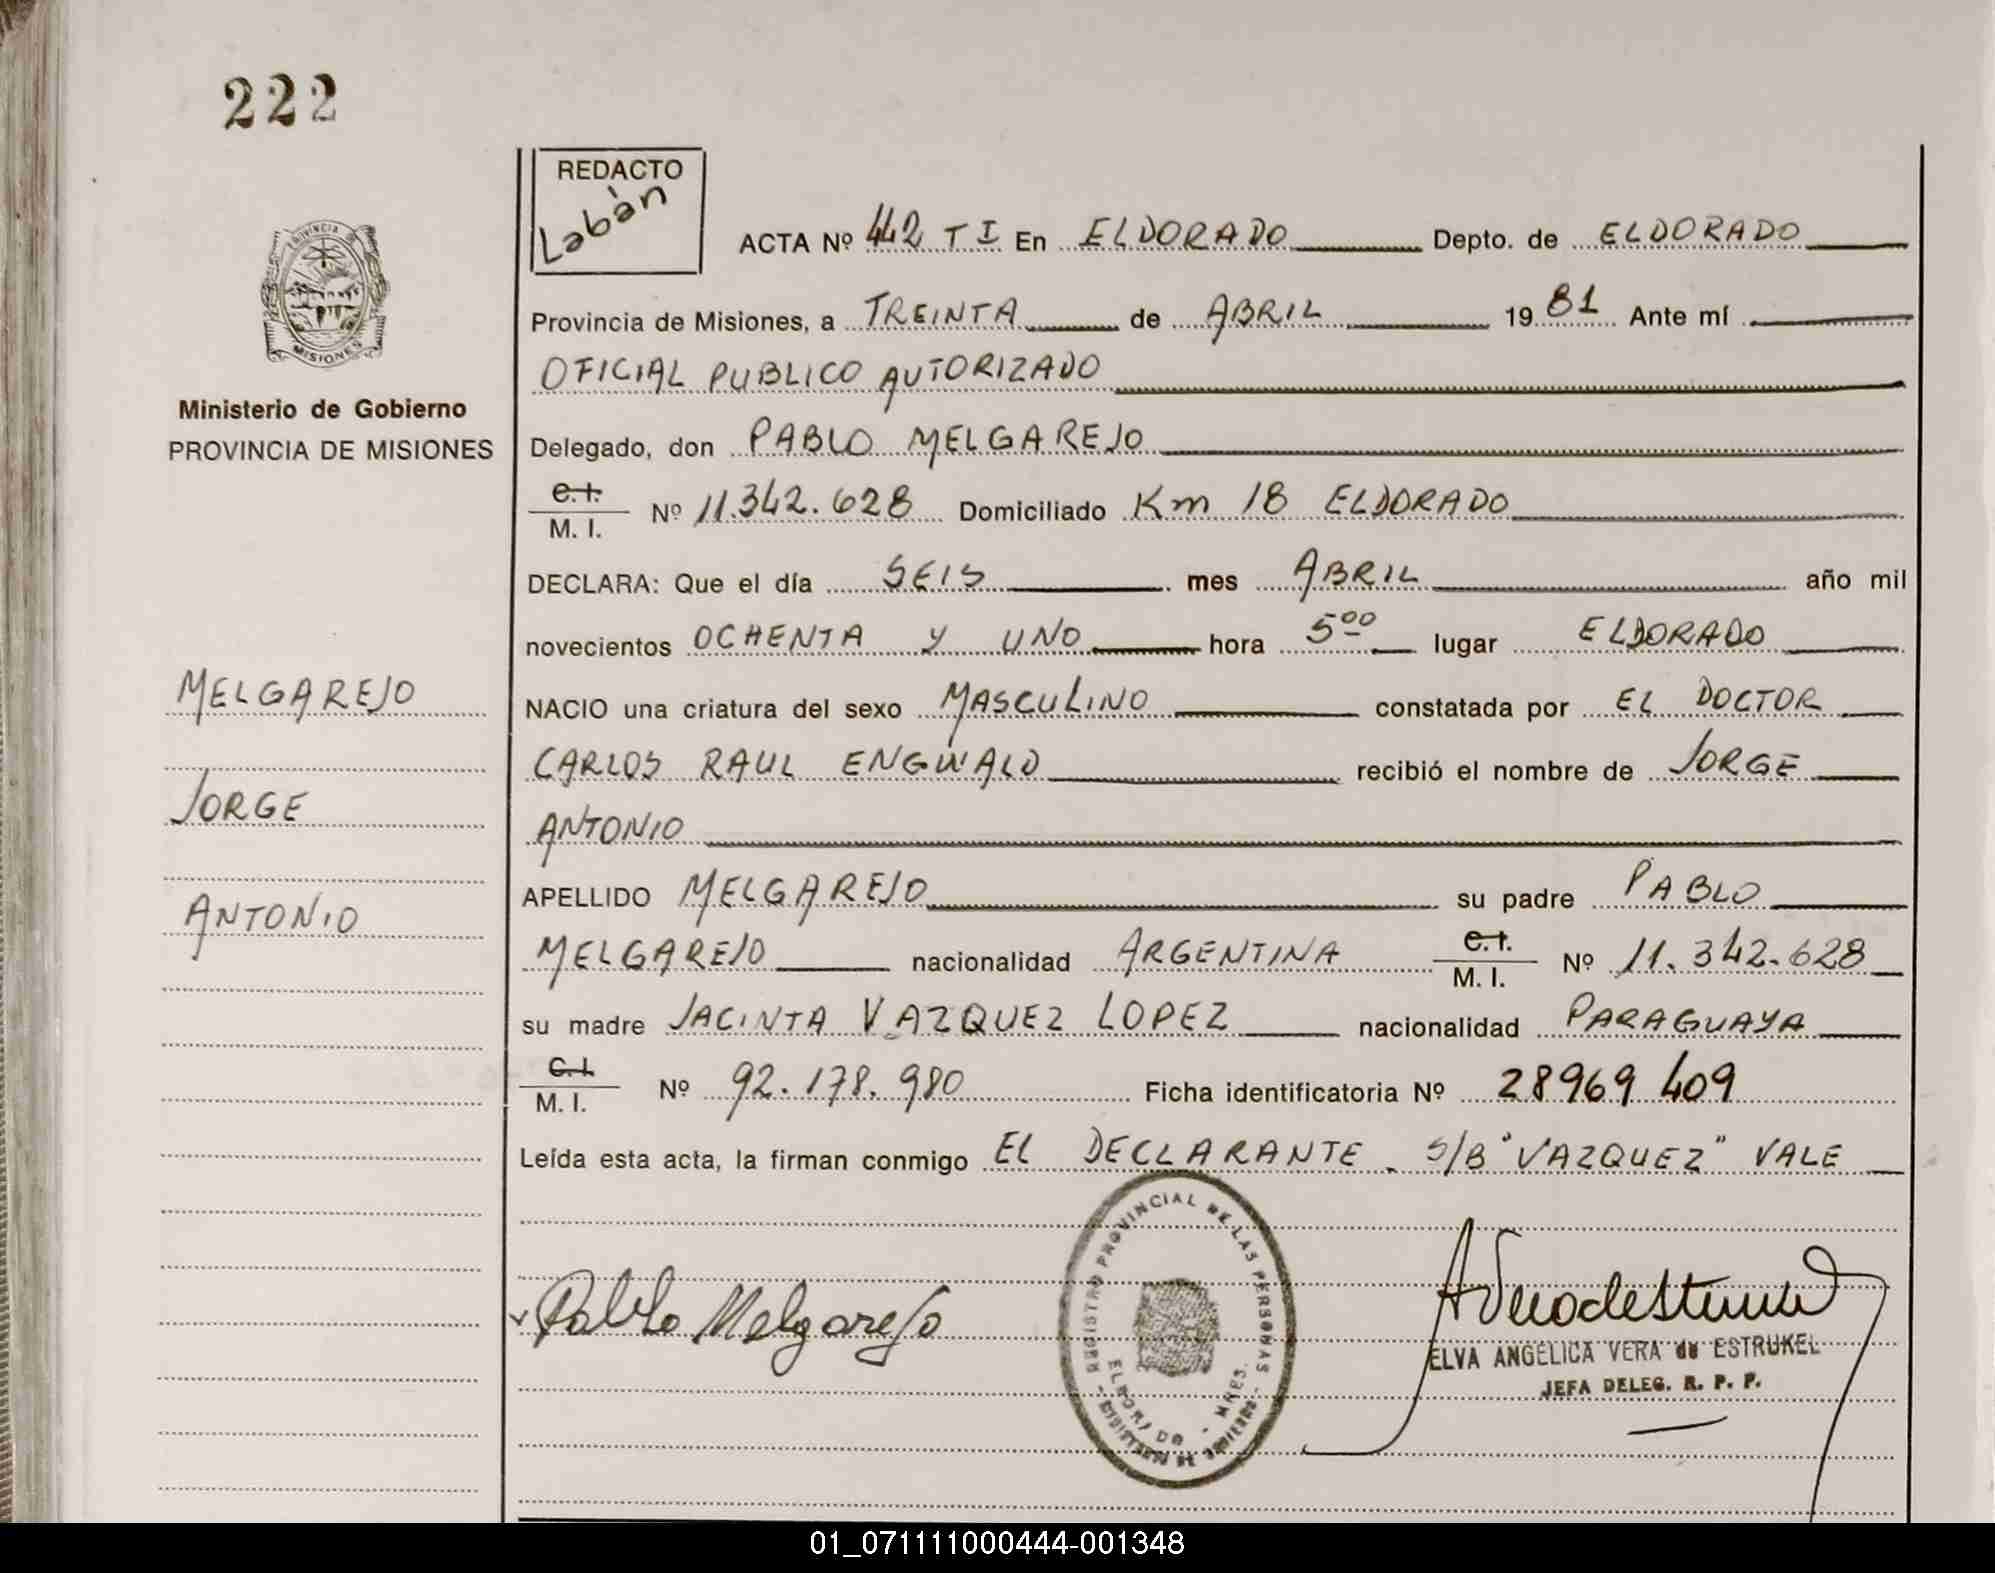 222
REDACTO
Labàn
ACTA Nº 442 T I En ELDORADO Depto. de ELDORADO
Provincia de Misiones, a TREINTA de ABRIL 19 81 Ante mí
OFICIAL PUBLICO AUTORIZADO
Ministerio de Gobierno
PROVINCIA DE MISIONES
Delegado, don PABLO MELGAREJO
C.I.
M. I. Nº 11.342.628 Domiciliado Km 18 ELDORADO
DECLARA: Que el día SEIS mes ABRIL año mil
novecientos OCHENTA Y UNO hora 5 00 lugar ELDORADO
NACIO una criatura del sexo MASCULINO constatada por EL DOCTOR
CARLOS RAUL ENGWALD recibió el nombre de JORGE
ANTONIO
MELGAREJO
JORGE
ANTONIO
APELLIDO MELGAREJO su padre PABLO
MELGAREJO nacionalidad ARGENTINA C.I. M. I. Nº 11.342.628
su madre JACINTA VAZQUEZ LOPEZ nacionalidad PARAGUAYA
C.I.
M. I. Nº 92.178.980 Ficha identificatoria Nº 28969 409
Leída esta acta, la firman conmigo EL DECLARANTE. S/B "VAZQUEZ" VALE
Pablo Melgarejo
REGISTRO PROVINCIAL DE LAS PERSONAS
ELDORADO - MNES.
ELVA ANGELICA VERA de ESTRUKEL
JEFA DELEG. R. P. P.
PROVINCIA
MISIONES
01_071111000444-001348